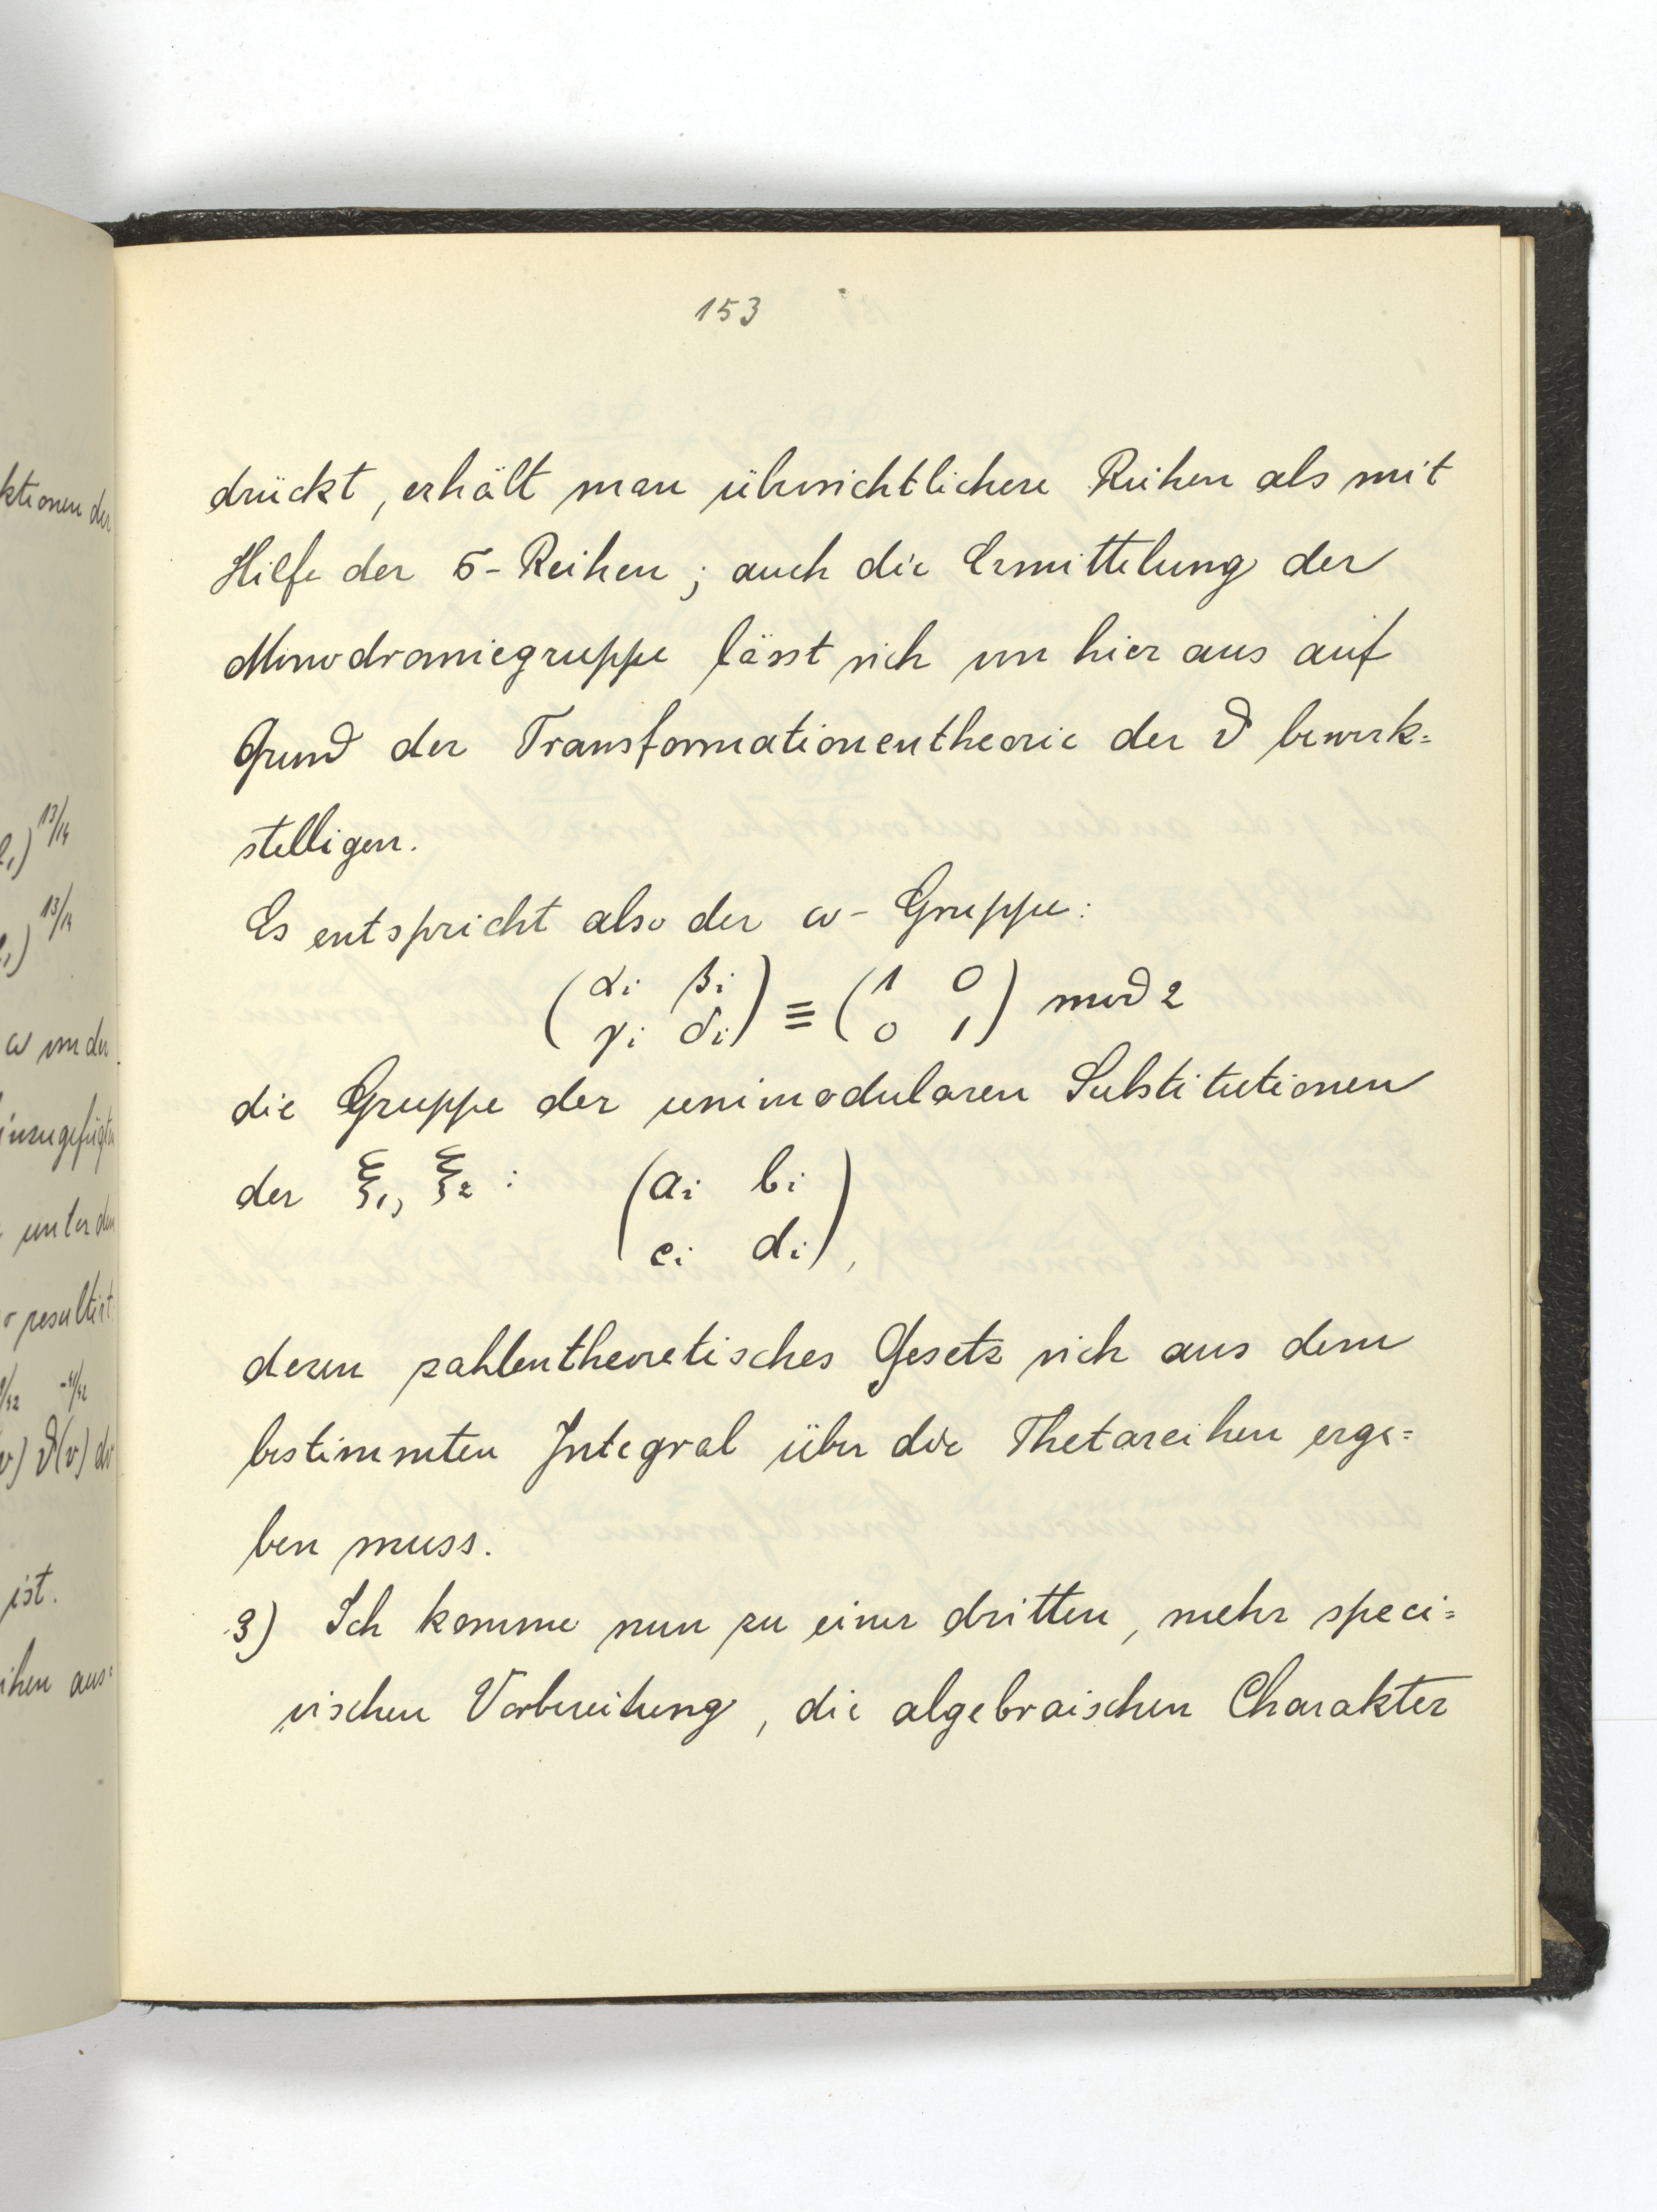 153
drückt, erhält man übersichtlichere Reihen als mit
Hilfe der σ-Reihen; auch die Ermittelung der
Monodromiegruppe lässt sich von hier aus auf
Grund der Transformationentheorie der ϑ bewerk=
stelligen.
Es entspricht also der ω-Gruppe:
(αi βi
γi δi) ≡ (1 0
0 1) mod 2
die Gruppe der unimodularen Substitutionen
der ξ1, ξ2 : (ai bi
ci di),
deren zahlentheoretisches Gesetz sich aus dem
bestimmten Integral über die Thetareihen erge=
ben muss.
3) Ich komme nun zu einer dritten, mehr speci=
vischen Vorbereitung, die algebraischen Charakter
ktionen der
13/14
13/14
ω von der
hinzugefügten
unter dem
resultirt
ϑ(v) dv
ist.
ihen aus=